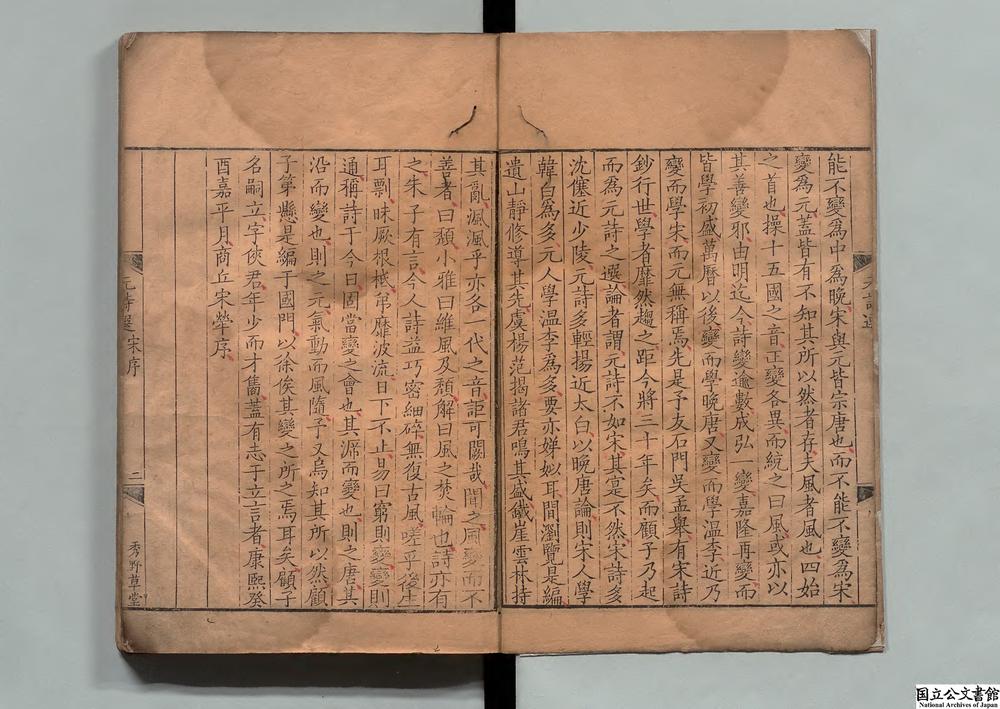 能不變爲中爲晚宋與元皆宗唐也而不能不變爲宋
變爲元蓋皆有不知其所以然者存夫風者風也四始
之首也操十五國之音正變各異而統之曰風或亦以
其善變邪由明迄今詩變逾數成弘一變嘉隆再變而
皆學初盛萬曆以後變而學晚唐又變而學温李近乃
變而學宋而元無稱焉先是予友石門吳孟舉有宋詩
鈔行世學者靡然趨之距今將三十年矣而顧子乃起
而爲元詩之選論者謂元詩不如宋其寔不然宋詩多
沈僿近少陵元詩多輕揚近太白以晚唐論則宋人學
韓白爲多元人學温李爲多要亦娣姒耳間瀏覽是編
遺山靜修導其先虞楊范揭諸君鳴其盛鐵崖雲林持
其亂渢渢乎亦各一代之音詎可闕哉聞之風變而不
善者曰頹小雅曰維風及頹解曰風之焚輪也詩亦有
之朱子有言今人詩益巧密細碎無復古風嗟乎後生
耳剽昧厥根柢弟靡波流日下不止易曰窮則變變則
通稱詩于今日固當變之會也其源而變也則之唐其
沿而變也則之元氣動而風隨予又烏知其所以然顧
子第懸是編于國門以徐俟其變之所之焉耳矣顧子
名嗣立字俠君年少而才雋蓋有志于立言者康熙癸
酉嘉平月商丘宋犖序
元詩選 宋序
二
秀野草堂
国立公文書館
National Archives of Japan